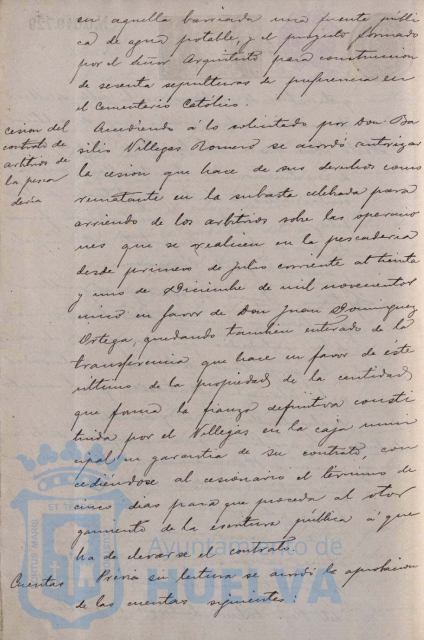 en aquella barriada una fuente públi
ca de agua potable, y el proyecto formado
por el Señor Arquitecto para construccion
de sesenta sepulturas de preferencia en
el Cementerio Católico.
cesion del
contrato de
arbitrios de
la pesca
deria
Accediendo á lo solicitado por Don Ba
silio Villegas Romero se acordó autorizar
la cesion que hace de sus derechos como
rematante en la subasta celebrada para
arriendo de los arbitrios sobre las operacio
nes que se realicen en la pescaderia
desde primero de Julio corriente al treinta
y uno de Diciembre de mil novecientos
uno en favor de Don Juan Dominguez
Ortega, quedando tambien entrado de la
transferencia que hace en favor de éste
ultimo de la propiedad de la cantidad
que forma la fianza definitiva consti
tuida por el Villegas en la caja muni
cipal en garantia de su contrato, con
cediéndose al cesionario el término de
cinco dias para que proceda al otor
gamiento de la escritura pública á que
ha de elevarse el contrato.
Cuentas
Previa su lectura se acordó la aprobacion
de las cuentas siguientes:
Ayuntamiento de
HUELVA